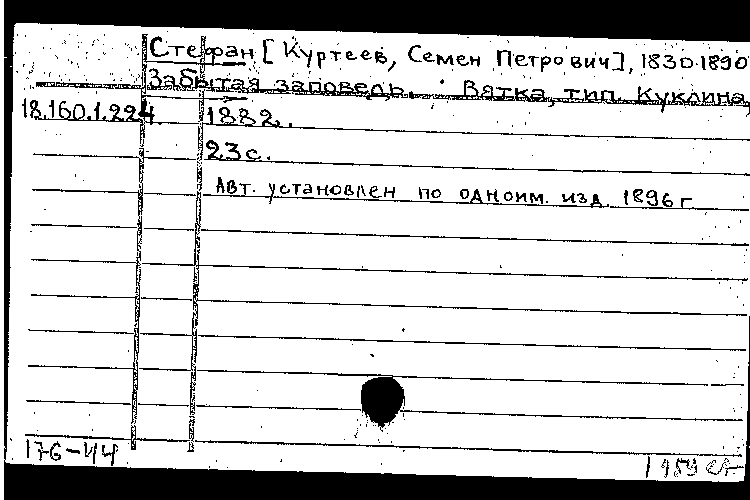 Стефан [Куртеев, Семен Петрович], 1830-1890
Забытая заповедь. Вятка, тип. Куклина,
18.160.1.224 1882.
23с.
Авт. установлен по одноим. изд. 1896 г
176-44